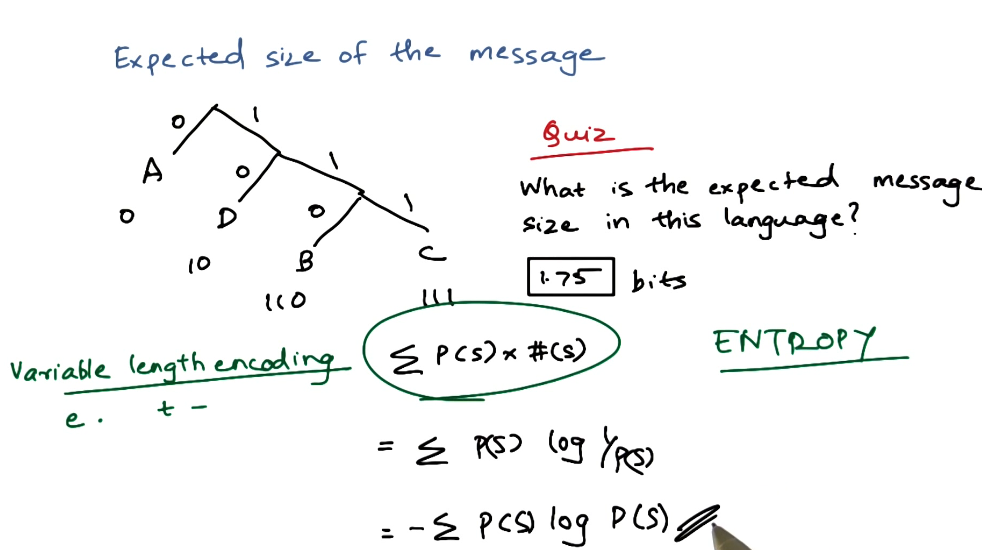 Expected size of the message
0 1
A 0 1
0 D 0 1
10 B C
110 111
Quiz
What is the expected message
size in this language?
1.75 bits
Variable length encoding
e . t -
Σ P(s) × #(s)
ENTROPY
= Σ P(s) log 1/P(s)
= - Σ P(s) log P(s)